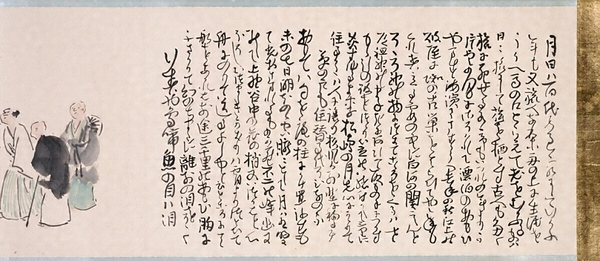 月日は百代の過客にして行かふ
年も又旅人也舟の上に生涯を
うかへ馬の口とらえて老をむかふる物は
日々旅にして旅を栖とす古人も多く
旅に死せるあり予もいつれの年よりか
片雲の風にさそはれて漂泊のおもひ
やます海濱にさすらへ去年の秋江上の
破屋に蜘の古巣をはらひてやゝ年も
暮春立る霞の空に白川の関こえんと
そゝろ神の物につきて心をくるはせ
道祖神のまねきにあひて取もの手につかす
もゝ引の破をつゝり笠の緒付かえて三里に
灸すゆるより松嶋の月先心にかゝりて
住る方は人に譲り杉風か別墅に移るに
草の戸も住替る代そひなの家
面八句を庵の柱に懸置弥生も
末の七日明ほのゝ空朧々として月は有明
にて光おさまれる物から不二の峰幽に
みえて上野谷中の花の梢又いつかはと心
ほそしむつましきかきりは宵よりつとひて
舟に乗て送る千しゆと云所にて
船をあかれは前途三千里のおもひ胸に
ふさかりて幻のちまたに離別の泪をそゝく
行春や鳥啼魚の目は泪